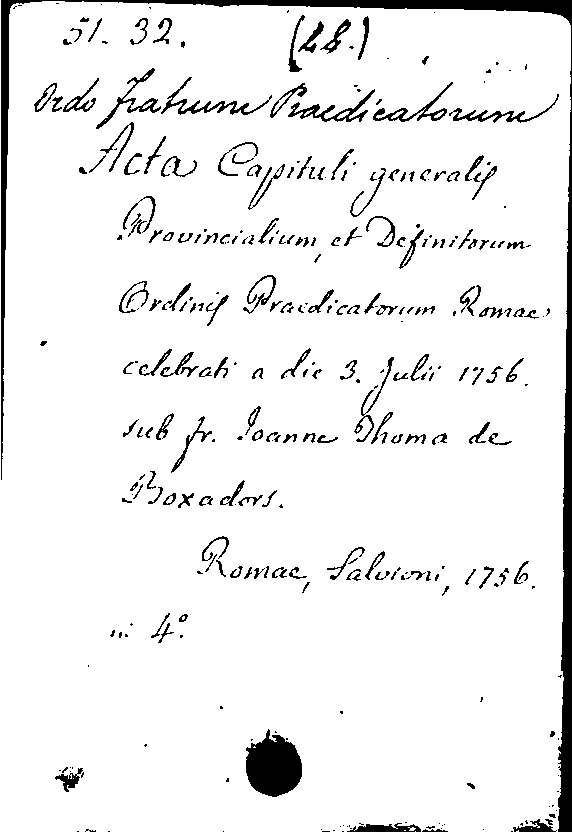 51. 32. (28.)
Ordo Fratrum Praedicatorum
Acta Capituli generalis
Provincialium, et Definitorum
Ordinis Praedicatorum Romae
celebrati a die 3. Julii 1756.
sub fr. Ioanne Thoma de
Boxadors.
Romae, Salvioni, 1756.
in 4º.